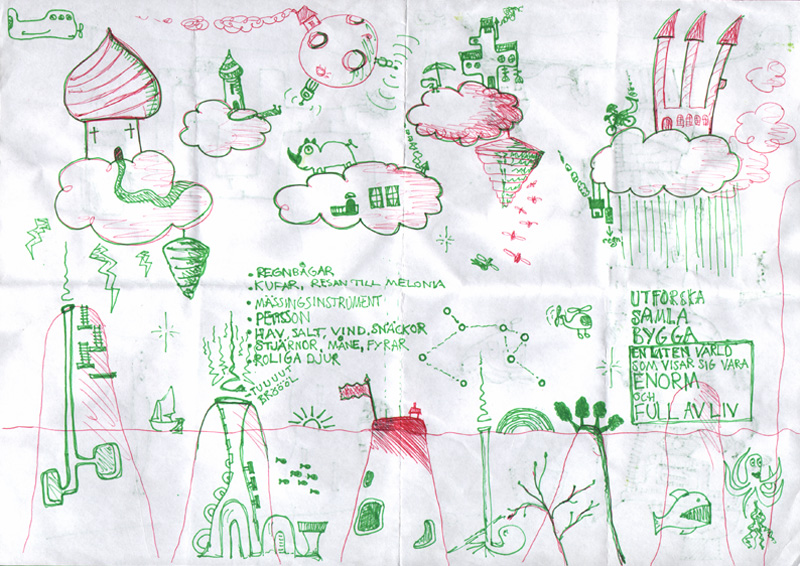 • REGNBÅGAR
• KUFAR, RESAN TILL MELONIA
• MÄSSINGSINSTRUMENT
• PERSSON
• HAV, SALT, VIND, SNÄCKOR
• STJÄRNOR, MÅNE, FYRAR
• ROLIGA DJUR
TUUUUT
BRÖÖÖL
UTFORSKA
SAMLA
BYGGA
EN LITEN VÄRLD
SOM VISAR SIG VARA
ENORM
OCH
FULL AV LIV